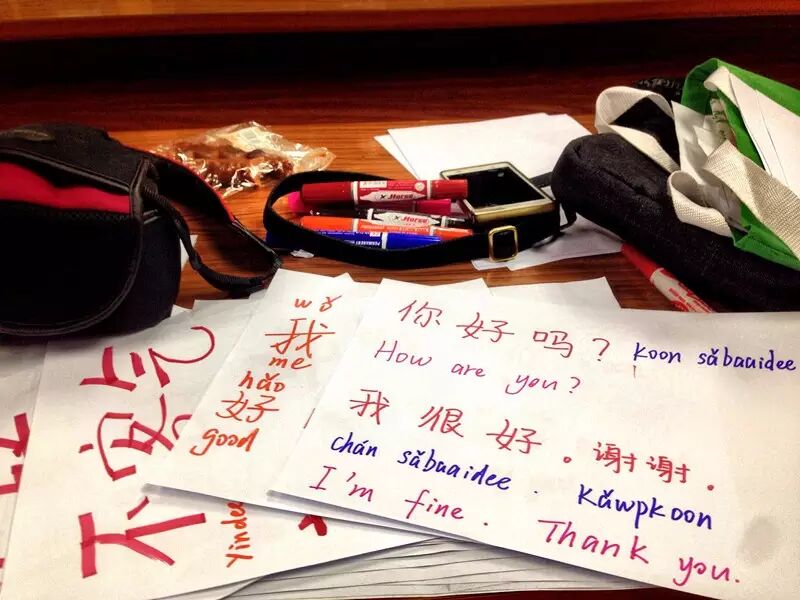 你好吗？ koon sǎbaaidee
How are you?
我很好。谢谢。
chán sǎbaaidee. Kǎwpkoon
I'm fine. Thank you.
wǒ
我
me
hǎo
好
good
不客气
Yindee
Horse
Horse